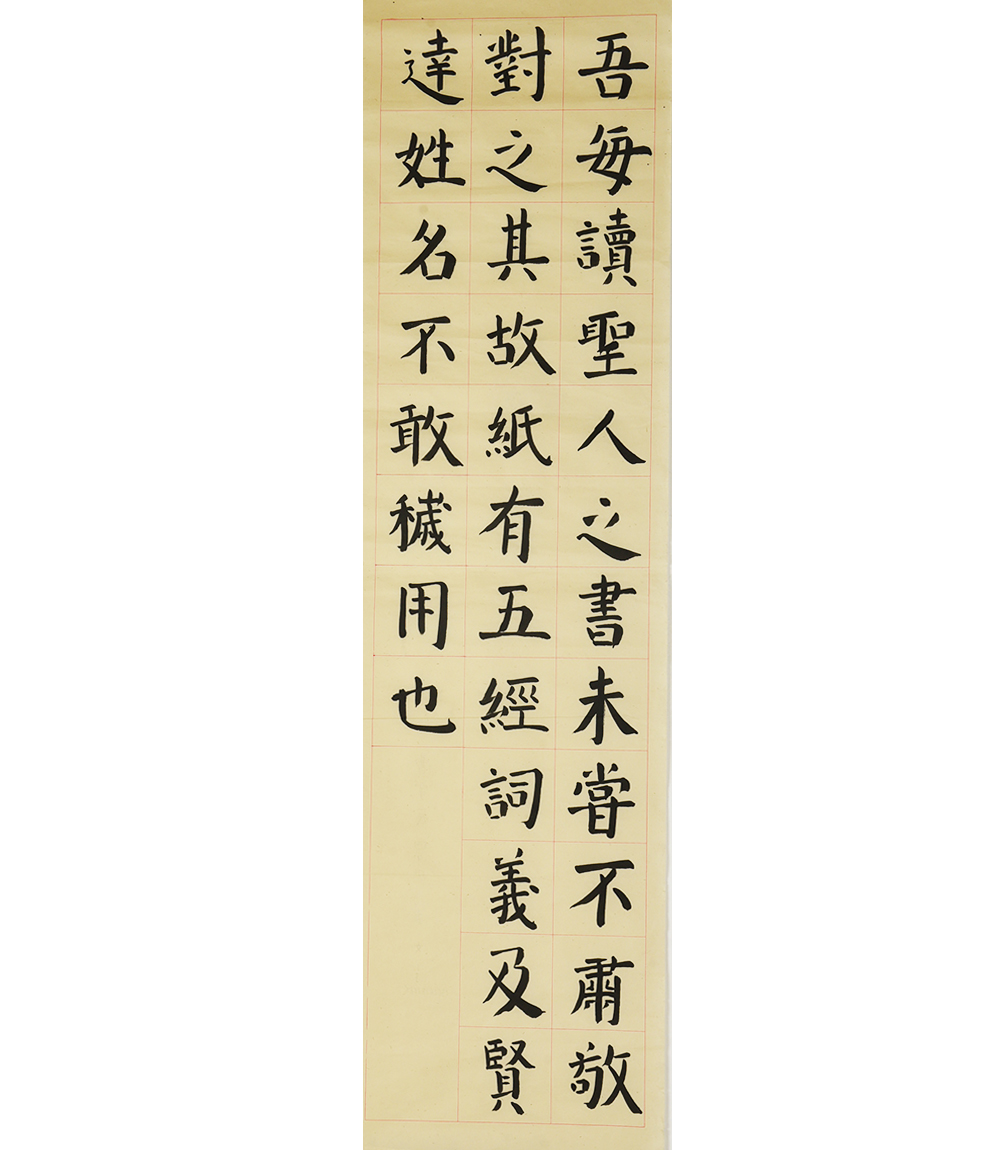 吾每讀聖人之書未嘗不肅敬
對之其故紙有五經詞義及賢
達姓名不敢穢用也